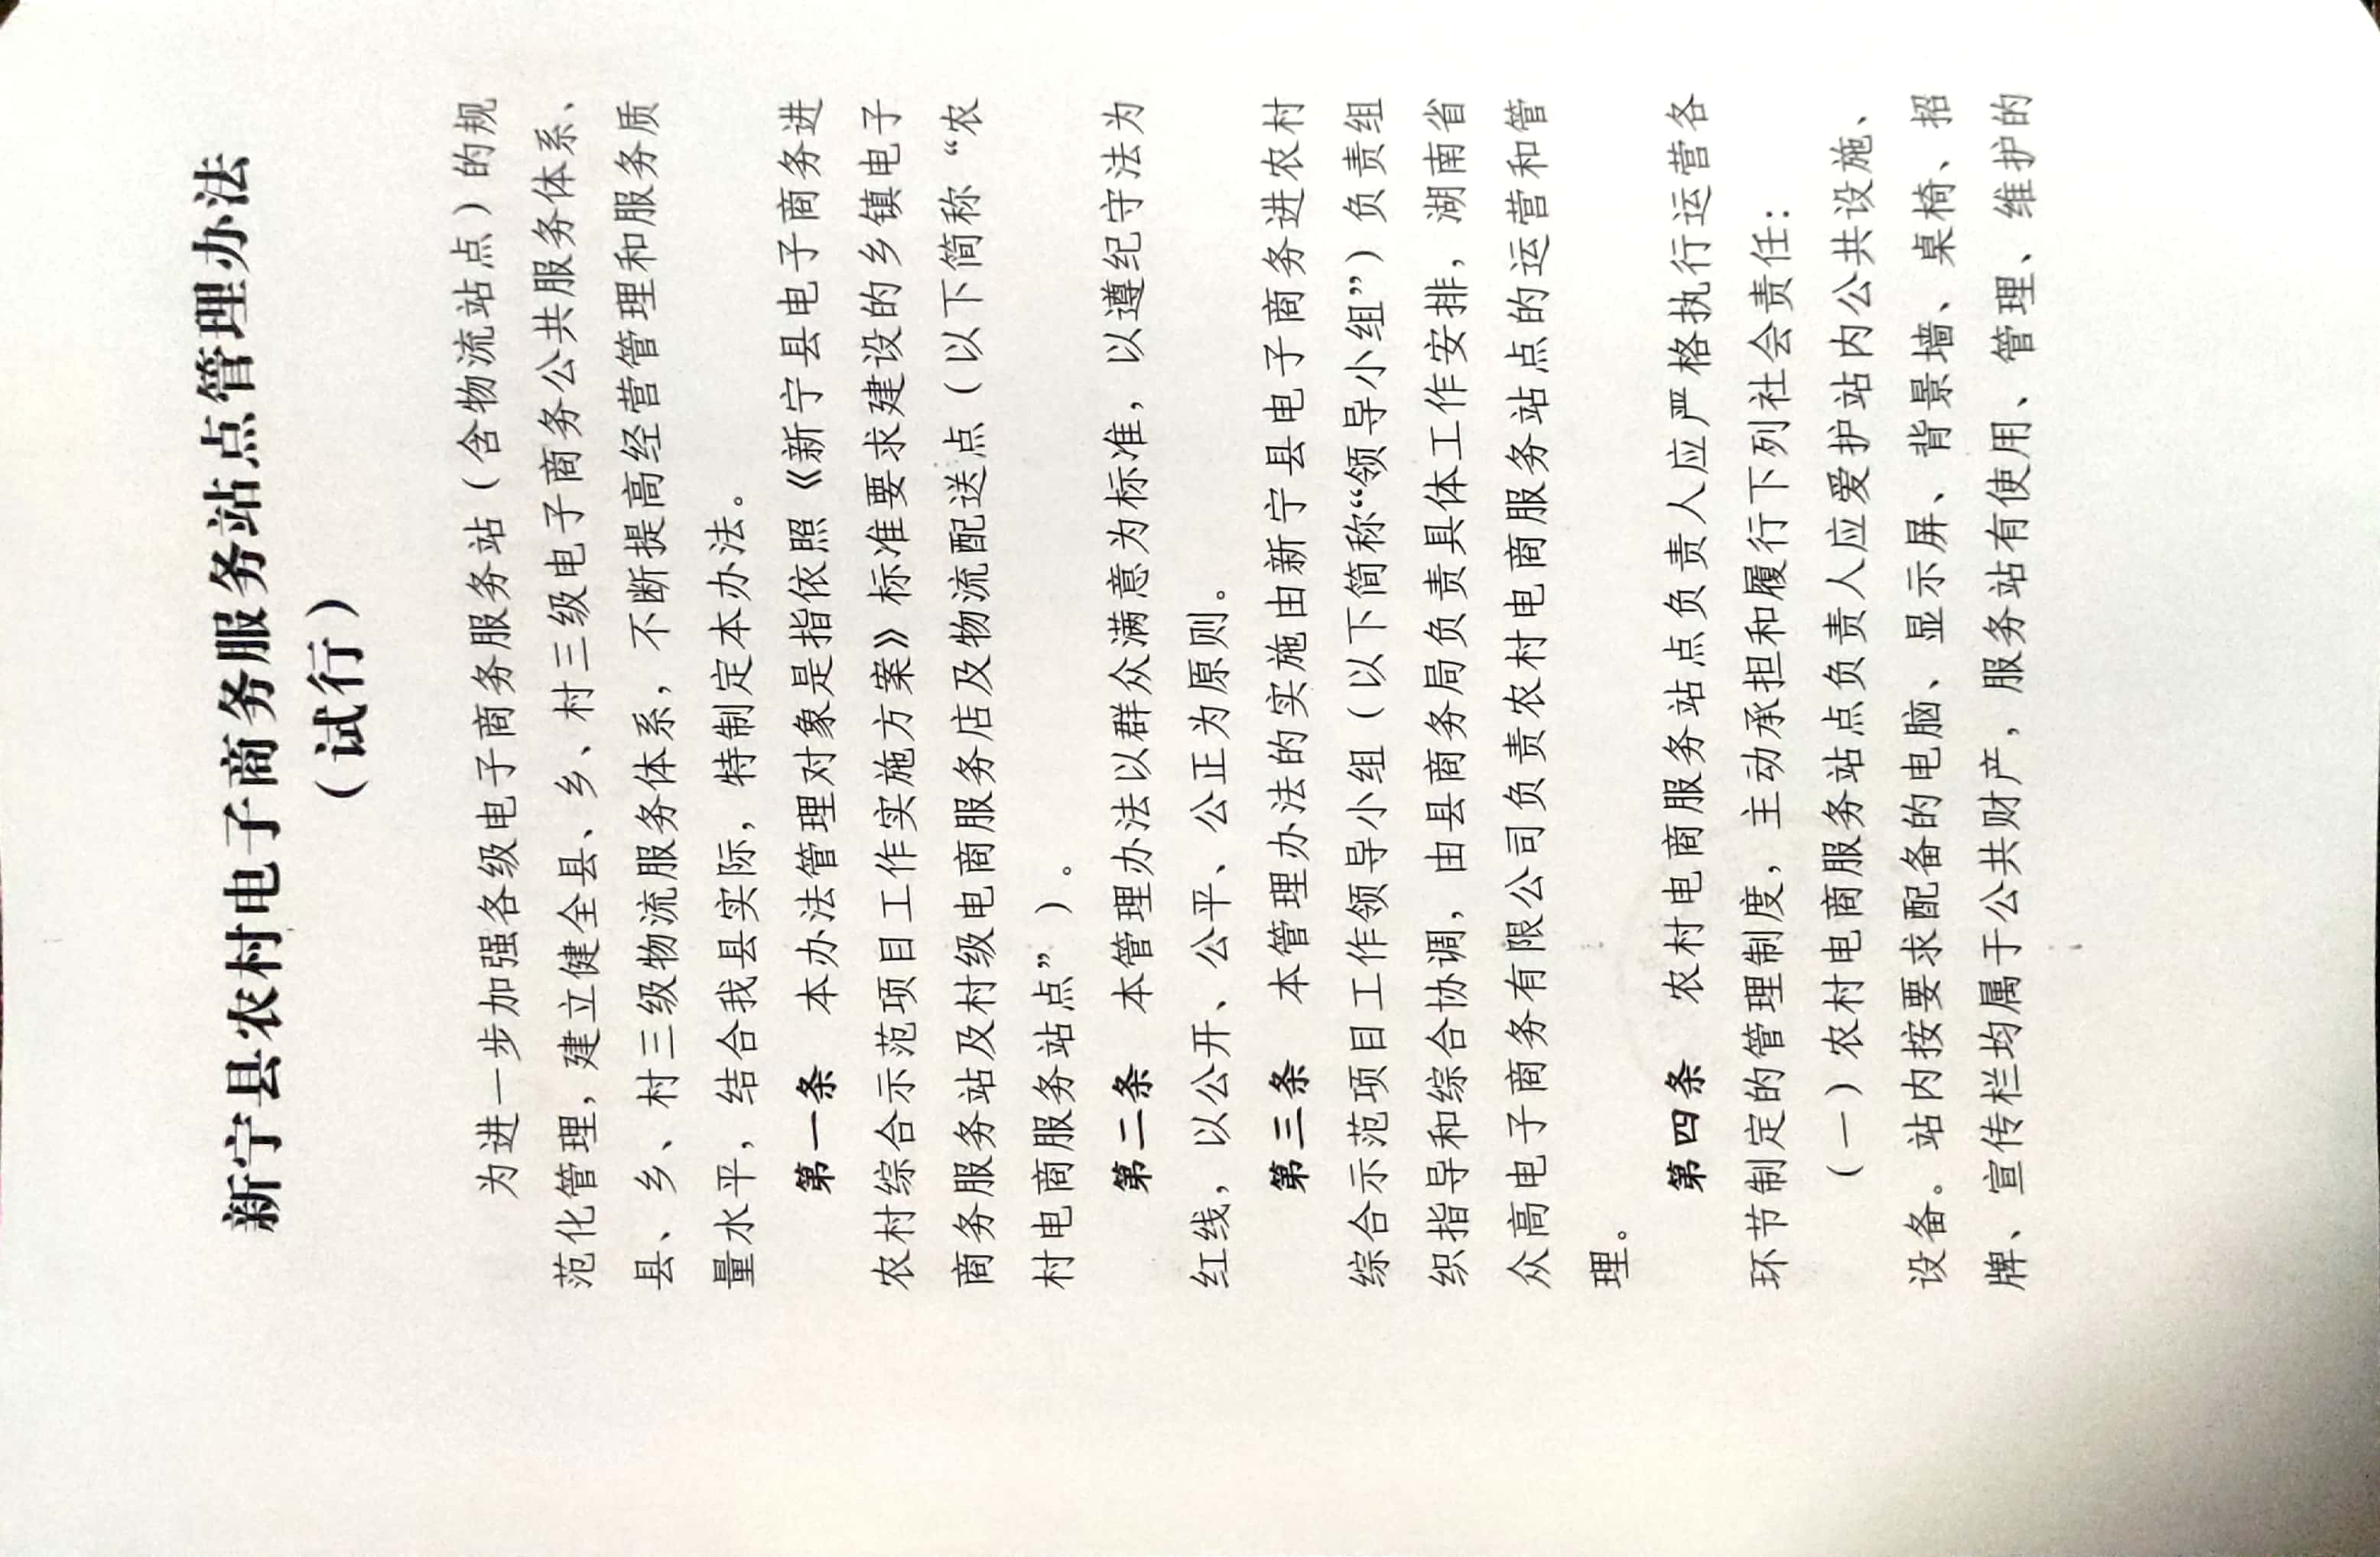 新宁县农村电子商务服务站点管理办法
（试行）
为进一步加强各级电子商务服务站（含物流站点）的规
范化管理，建立健全县、乡、村三级电子商务公共服务体系、
县、乡、村三级物流服务体系，不断提高经营管理和服务质
量水平，结合我县实际，特制定本办法。
第一条 本办法管理对象是指依照《新宁县电子商务进
农村综合示范项目工作实施方案》标准要求建设的乡镇电子
商务服务站及村级电商服务店及物流配送点（以下简称“农
村电商服务站点”）。
第二条 本管理办法以群众满意为标准，以遵纪守法为
红线，以公开、公平、公正为原则。
第三条 本管理办法的实施由新宁县电子商务进农村
综合示范项目工作领导小组（以下简称“领导小组”）负责组
织指导和综合协调，由县商务局负责具体工作安排，湖南省
众高电子商务有限公司负责农村电商服务站点的运营和管
理。
第四条 农村电商服务站点负责人应严格执行运营各
环节制定的管理制度，主动承担和履行下列社会责任：
（一）农村电商服务站点负责人应爱护站内公共设施、
设备。站内按要求配备的电脑、显示屏、背景墙、桌椅、招
牌、宣传栏均属于公共财产，服务站有使用、管理、维护的